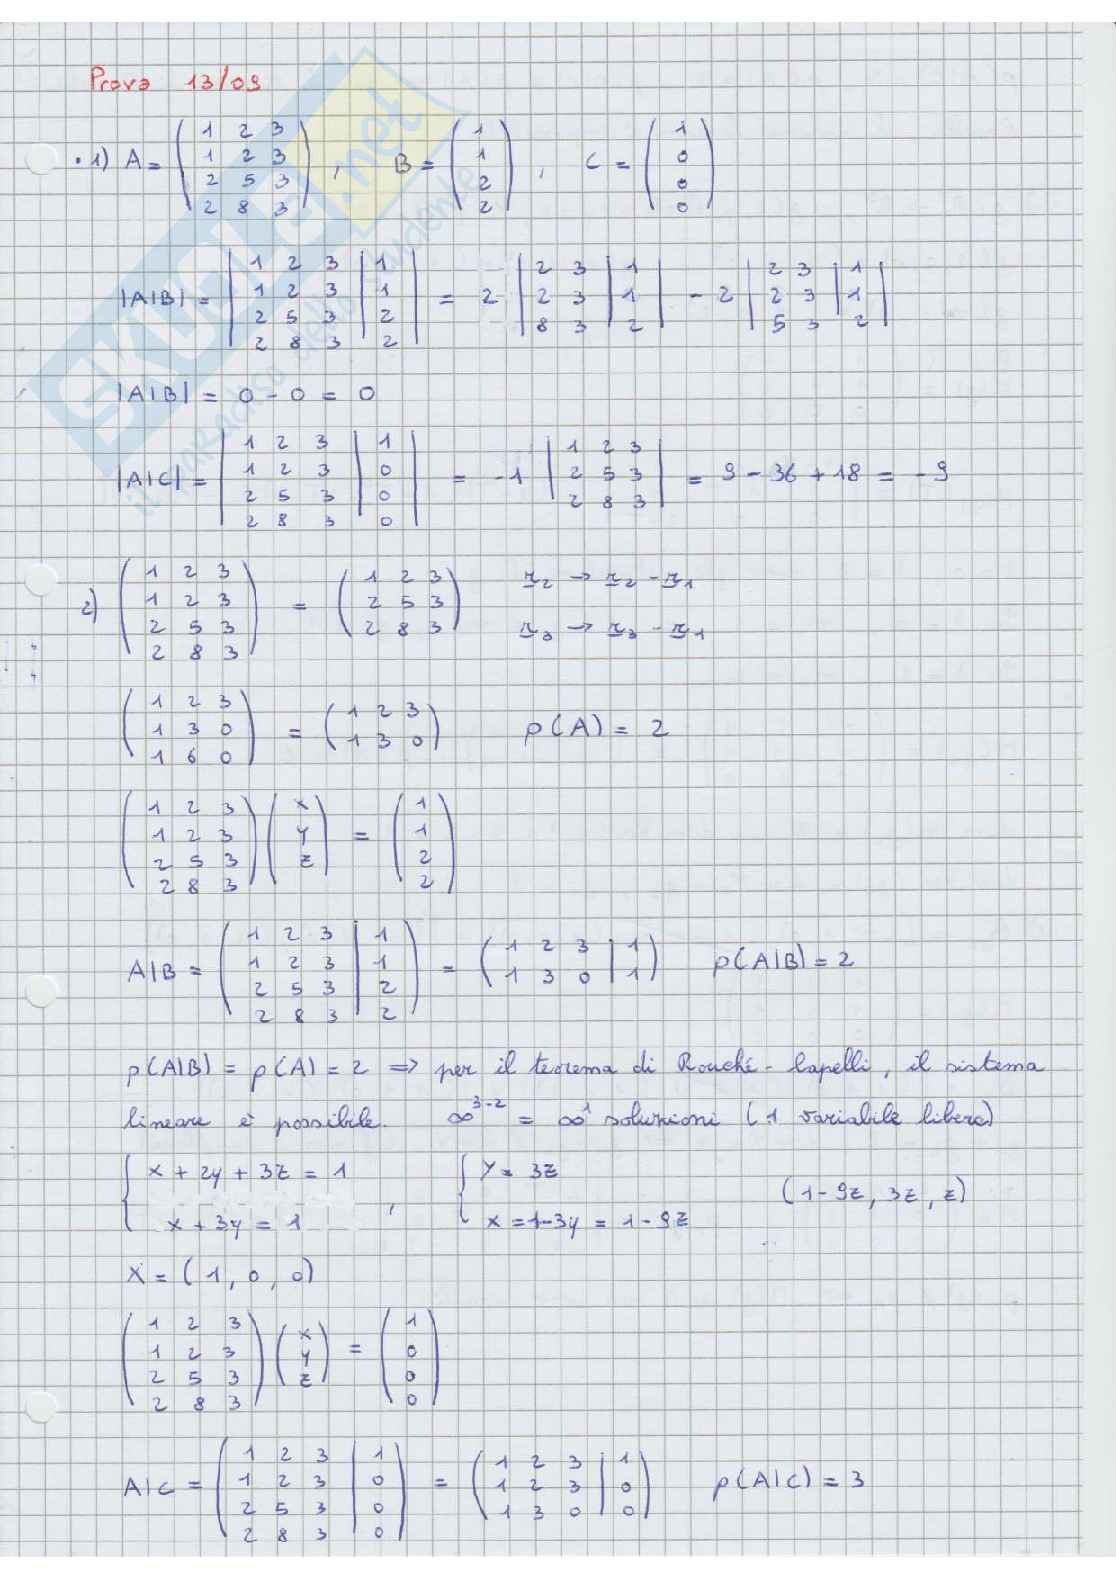 Prova 13/09
• 1) A = ( 1 2 3 / 1 2 3 / 2 5 3 / 2 8 3 ) , B = ( 1 / 1 / 2 / 2 ) , C = ( 1 / 0 / 0 / 0 )
|A|B| = | 1 2 3 | 1 / 1 2 3 | 1 / 2 5 3 | 2 / 2 8 3 | 2 | = 2 | 2 3 | 1 / 2 3 | 1 / 8 3 | 2 | - 2 | 2 3 | 1 / 2 3 | 1 / 5 3 | 2 |
|A|B| = 0 - 0 = 0
|A|C| = | 1 2 3 | 1 / 1 2 3 | 0 / 2 5 3 | 0 / 2 8 3 | 0 | = -1 | 1 2 3 / 2 5 3 / 2 8 3 | = 9 - 36 + 18 = -9
2) ( 1 2 3 / 1 2 3 / 2 5 3 / 2 8 3 ) = ( 1 2 3 / 2 5 3 / 2 8 3 ) r2 → r2 - r1
r3 → r3 - r1
( 1 2 3 / 1 3 0 / 1 6 0 ) = ( 1 2 3 / 1 3 0 ) ρ(A) = 2
( 1 2 3 / 1 2 3 / 2 5 3 / 2 8 3 ) ( x / y / z ) = ( 1 / 1 / 2 / 2 )
A|B = ( 1 2 3 | 1 / 1 2 3 | 1 / 2 5 3 | 2 / 2 8 3 | 2 ) = ( 1 2 3 | 1 / 1 3 0 | 1 ) ρ(A|B) = 2
ρ(A|B) = ρ(A) = 2 => per il teorema di Rouché - Capelli, il sistema
lineare è possibile. ∞^3-2 = ∞^1 soluzioni (1 variabile libera)
{ x + 2y + 3z = 1 , { y = 3z (1-9z, 3z, z)
x + 3y = 1 x = 1-3y = 1-9z
X = (1, 0, 0)
( 1 2 3 / 1 2 3 / 2 5 3 / 2 8 3 ) ( x / y / z ) = ( 1 / 0 / 0 / 0 )
A|C = ( 1 2 3 | 1 / 1 2 3 | 0 / 2 5 3 | 0 / 2 8 3 | 0 ) = ( 1 2 3 | 1 / 1 2 3 | 0 / 1 3 0 | 0 ) ρ(A|C) = 3
SKUOLA.net
il paradiso dello studente